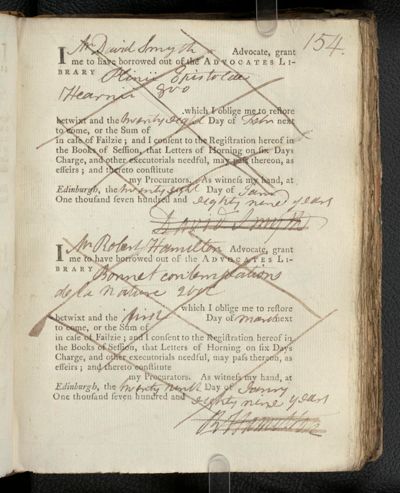 154.
I Mr David Smyth Advocate, grant
me to have borrowed out of the ADVOCATES LI-
BRARY Plinii Epistolae
Hearnii 8vo
which I oblige me to restore
betwixt and the twenty eight Day of Febr next
to come, or the Sum of
in case of Failzie; and I consent to the Registration hereof in
the Books of Session, that Letters of Horning on six Days
Charge, and other executorials needful, may pass thereon, as
effeirs; and thereto constitute
my Procurators. As witness my hand, at
Edinburgh, the twenty eight Day of Janry
One thousand seven hundred and eighty nine years
David Smyth
I Mr Robert Hamilton Advocate, grant
me to have borrowed out of the ADVOCATES LI-
BRARY Bonnet contemplations
de la Nature 2 vol
which I oblige me to restore
betwixt and the first Day of March next
to come, or the Sum of
in case of Failzie; and I consent to the Registration hereof in
the Books of Session, that Letters of Horning on six Days
Charge, and other executorials needful, may pass thereon, as
effeirs; and thereto constitute
my Procurators. As witness my hand, at
Edinburgh, the twenty ninth Day of Janry
One thousand seven hundred and eighty nine years
Rt Hamilton